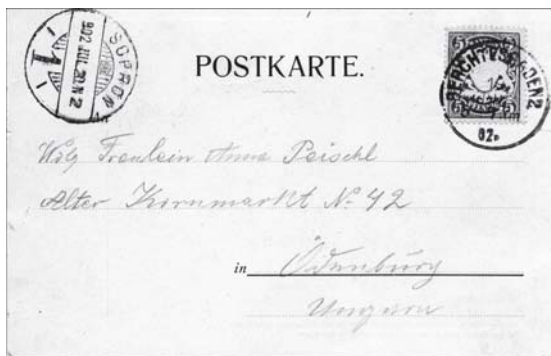 SOPRON
902 JUL 20 N 2
POSTKARTE.
BERCHTESGADEN 2
02.
5 5
5 5
Fräulein Anna Peischl
Alter Kornmarkt No 42
in Ödenburg
Ungarn